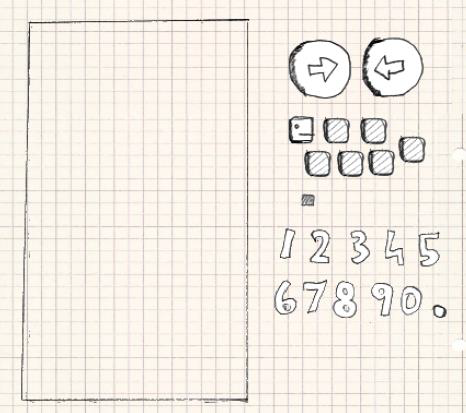 12345
67890.